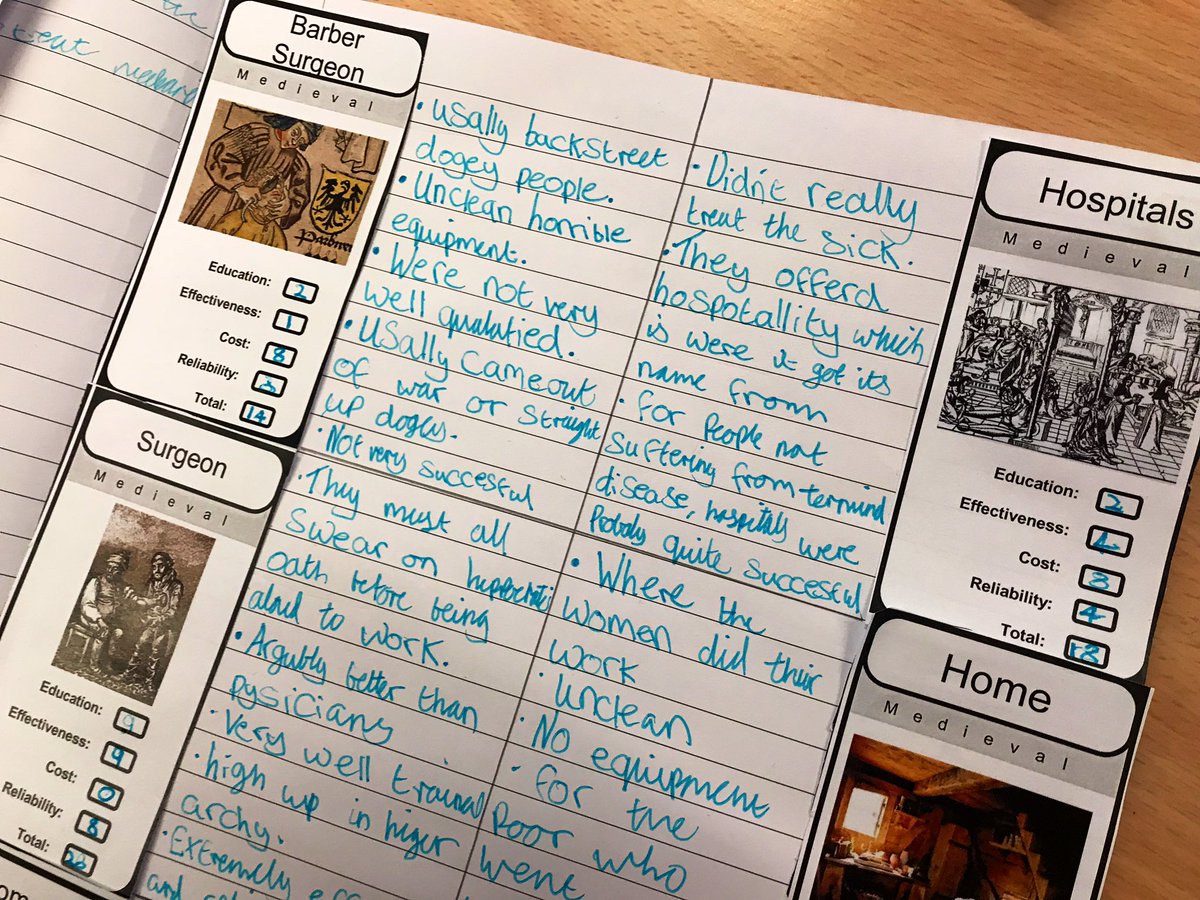 treat
Barber
Surgeon
Medieval
Education: 2
Effectiveness: 1
Cost: 8
Reliability:
Total: 14
• Usally backstreet
dogey people.
• Unclean horrible
equipment.
• Were not very
well
• Usally came out
of war or straight
up dogey.
• Not very succesful
Surgeon
Medieval
Education: 9
Effectiveness: 9
Cost: 0
Reliability: 8
Total: 26
• They must all
swear on
oath before being
to work.
• Argubly better than
pysicians
• Very well trained
• high up in higer
archy.
• Extremely
and
• Didn't really
treat the sick.
• They offerd
hospotallity which
is were it got its
name from
• for people not
suffering from
disease, hospitals were
Probaly quite successful
Hospitals
Medieval
Education: 2
Effectiveness: 4
Cost: 8
Reliability: 4
Total: 18
• Where the
women did thier
work
• Unclean
• No equipment
• for the
poor who
went
Home
Medieval